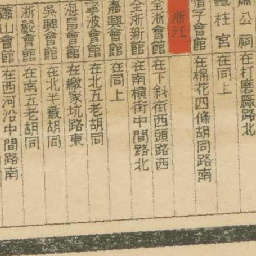 蕭公祠 在打磨廠路北
鐵柱宮 在同上
宿會館 在棉花四條胡同路南
浙江
全浙會館 在下斜街西頭路西
全浙新館 在南橫街中間路北
嘉興會館 在同上
寧波會館 在北五老胡同
海昌會館 在繩家坑路東
吳興會館 在北半截胡同
浙嚴會館 在南五老胡同
蕭山會館 在西河沿中間路南